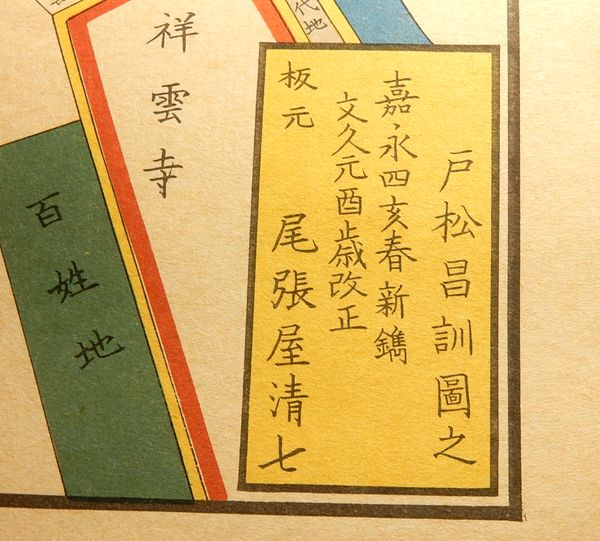 戸松昌訓圖之
嘉永四亥春新鐫
文久元酉歳改正
板元　尾張屋清七
代地
祥雲寺
百姓地